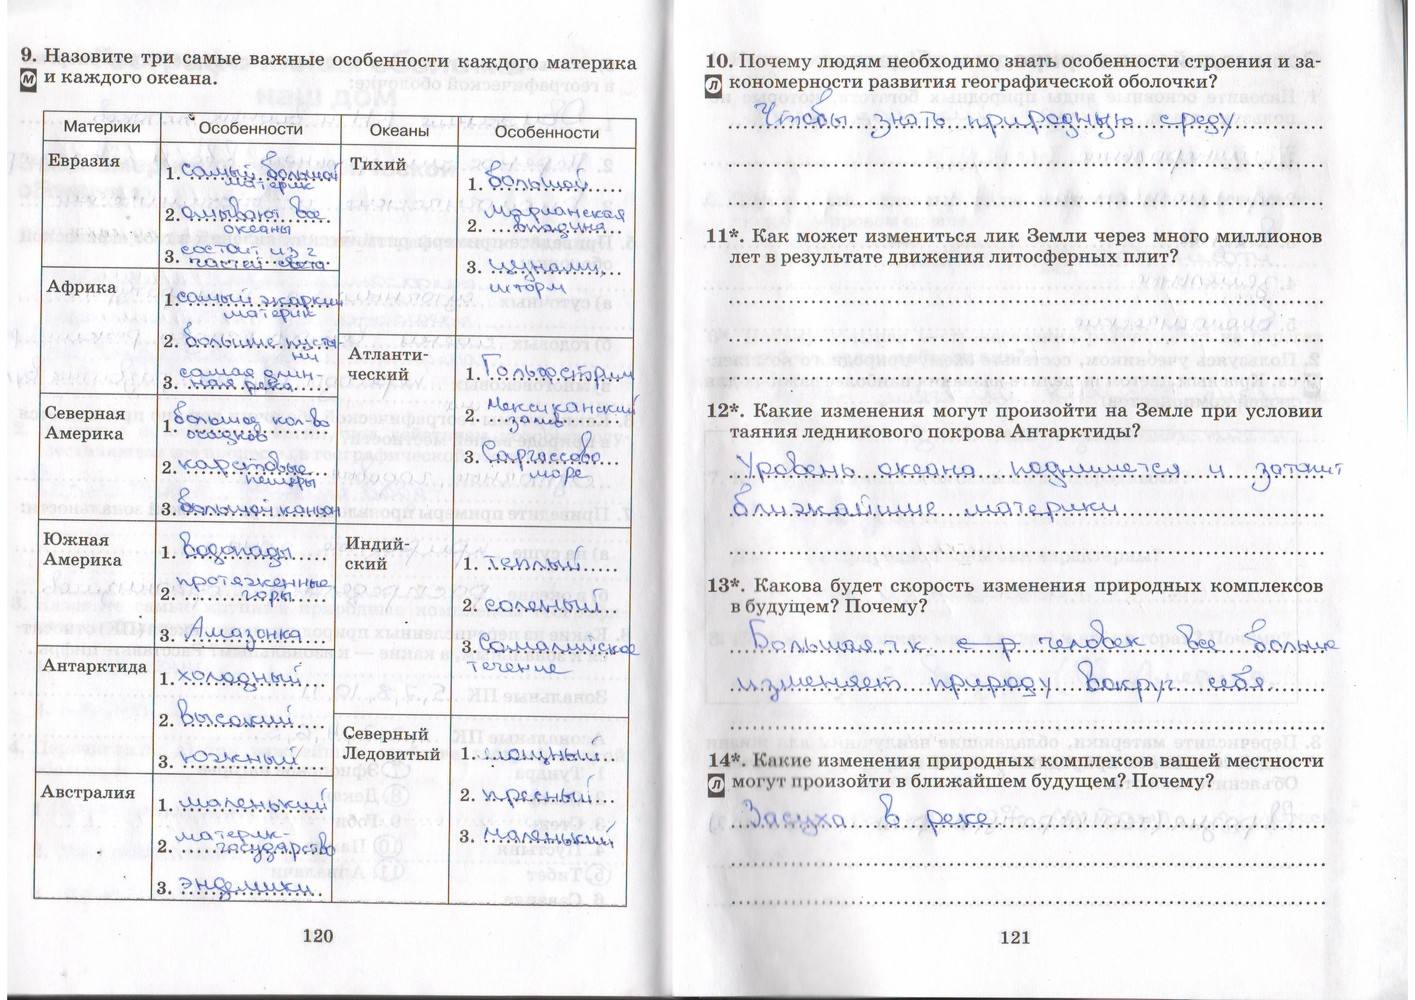 9. Назовите три самые важные особенности каждого материка
м и каждого океана.
Материки Особенности Океаны Особенности
Евразия
1. самый большой
материк
2. омывают все
океаны
3. состоит из 2
частей света
Африка
1. самый жаркий
материк
2. большие пусты-
ни
самая длин-
3. ная река
Северная
Америка
большое кол-во
1. осадков
2. карстовые
пещеры
3. большой каньон
Южная
Америка
1. водопады
протяженные
2. горы
3. Амазонка
Антарктида
1. холодный
2. высокий
3. южный
Австралия
1. маленький
материк-
2. государство
3. эндемики
Тихий
1. большой
Марианская
2. впадина
3. цунами,
шторм
Атланти-
ческий
1. Гольфстрим
2. Мексиканский
залив
3. Саргассово
море
Индий-
ский
1. теплый
2. соленый
3. Сомалийское
течение
Северный
Ледовитый
1. мощный
2. пресный
3. маленький
120
10. Почему людям необходимо знать особенности строения и за-
л кономерности развития географической оболочки?
Чтобы знать природную среду
11*. Как может измениться лик Земли через много миллионов
лет в результате движения литосферных плит?
12*. Какие изменения могут произойти на Земле при условии
таяния ледникового покрова Антарктиды?
Уровень океана поднимется и затопит
ближайшие материки
13*. Какова будет скорость изменения природных комплексов
в будущем? Почему?
Большая, т.к. человек все больше
изменяет природу вокруг себя.
14*. Какие изменения природных комплексов вашей местности
л могут произойти в ближайшем будущем? Почему?
Засуха в реке
121